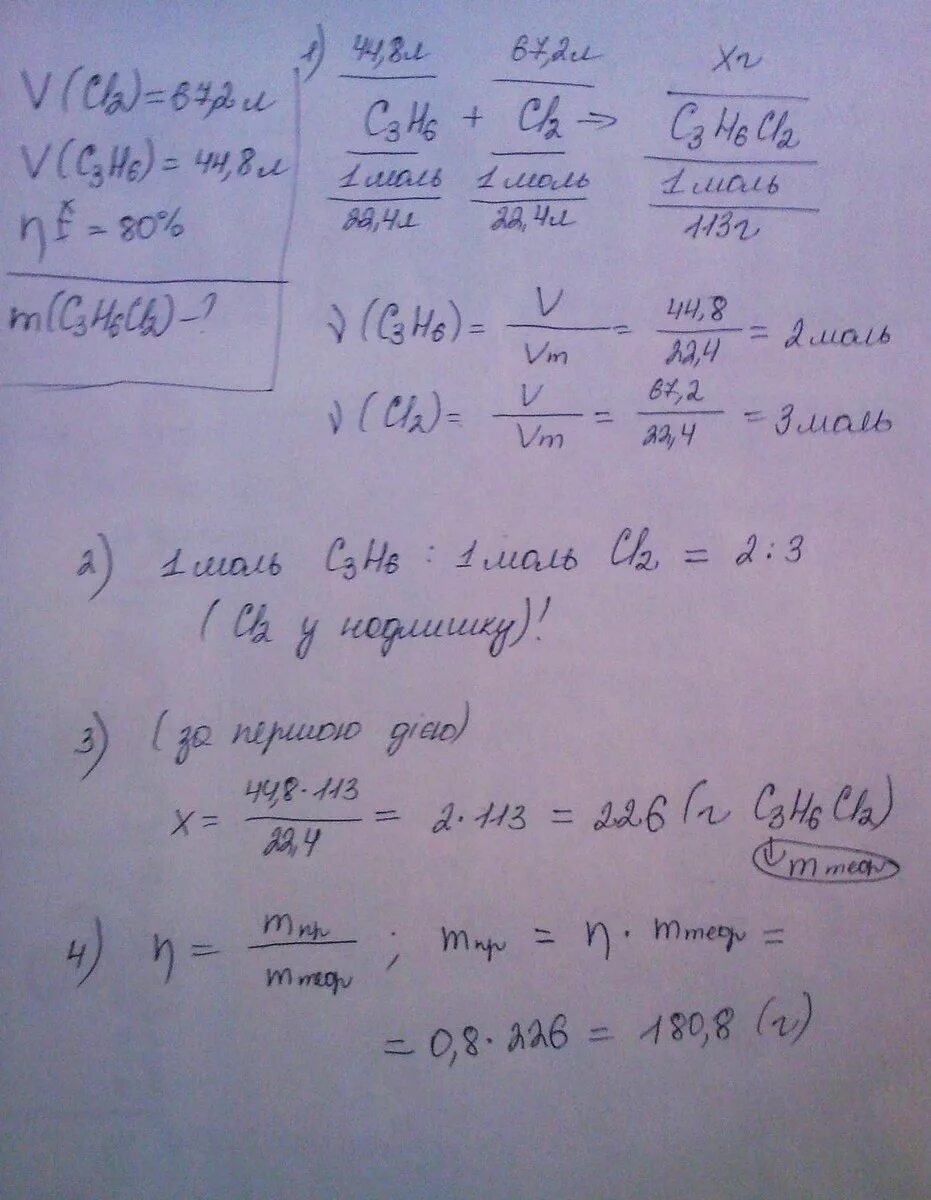 V(Cl2) = 67,2 л
V(C3H6) = 44,8 л
η = 80%
m(C3H6Cl2) – ?
1) 44,8л 67,2л xг
C3H6 + Cl2 ⇒ C3H6Cl2
1 моль 1 моль 1 моль
22,4л 22,4л 113г
ν(C3H6) = V/Vm = 44,8/22,4 = 2 моль
ν(Cl2) = V/Vm = 67,2/22,4 = 3 моль
2) 1 моль C3H6 : 1 моль Cl2 = 2 : 3
(Cl2 у надлишку)!
3) (за першою дією)
x = 44,8 · 113/22,4 = 2 · 113 = 226 (г C3H6Cl2)
m теор
4) η = mпр/mтеор ; mпр = η · mтеор =
= 0,8 · 226 = 180,8 (г)